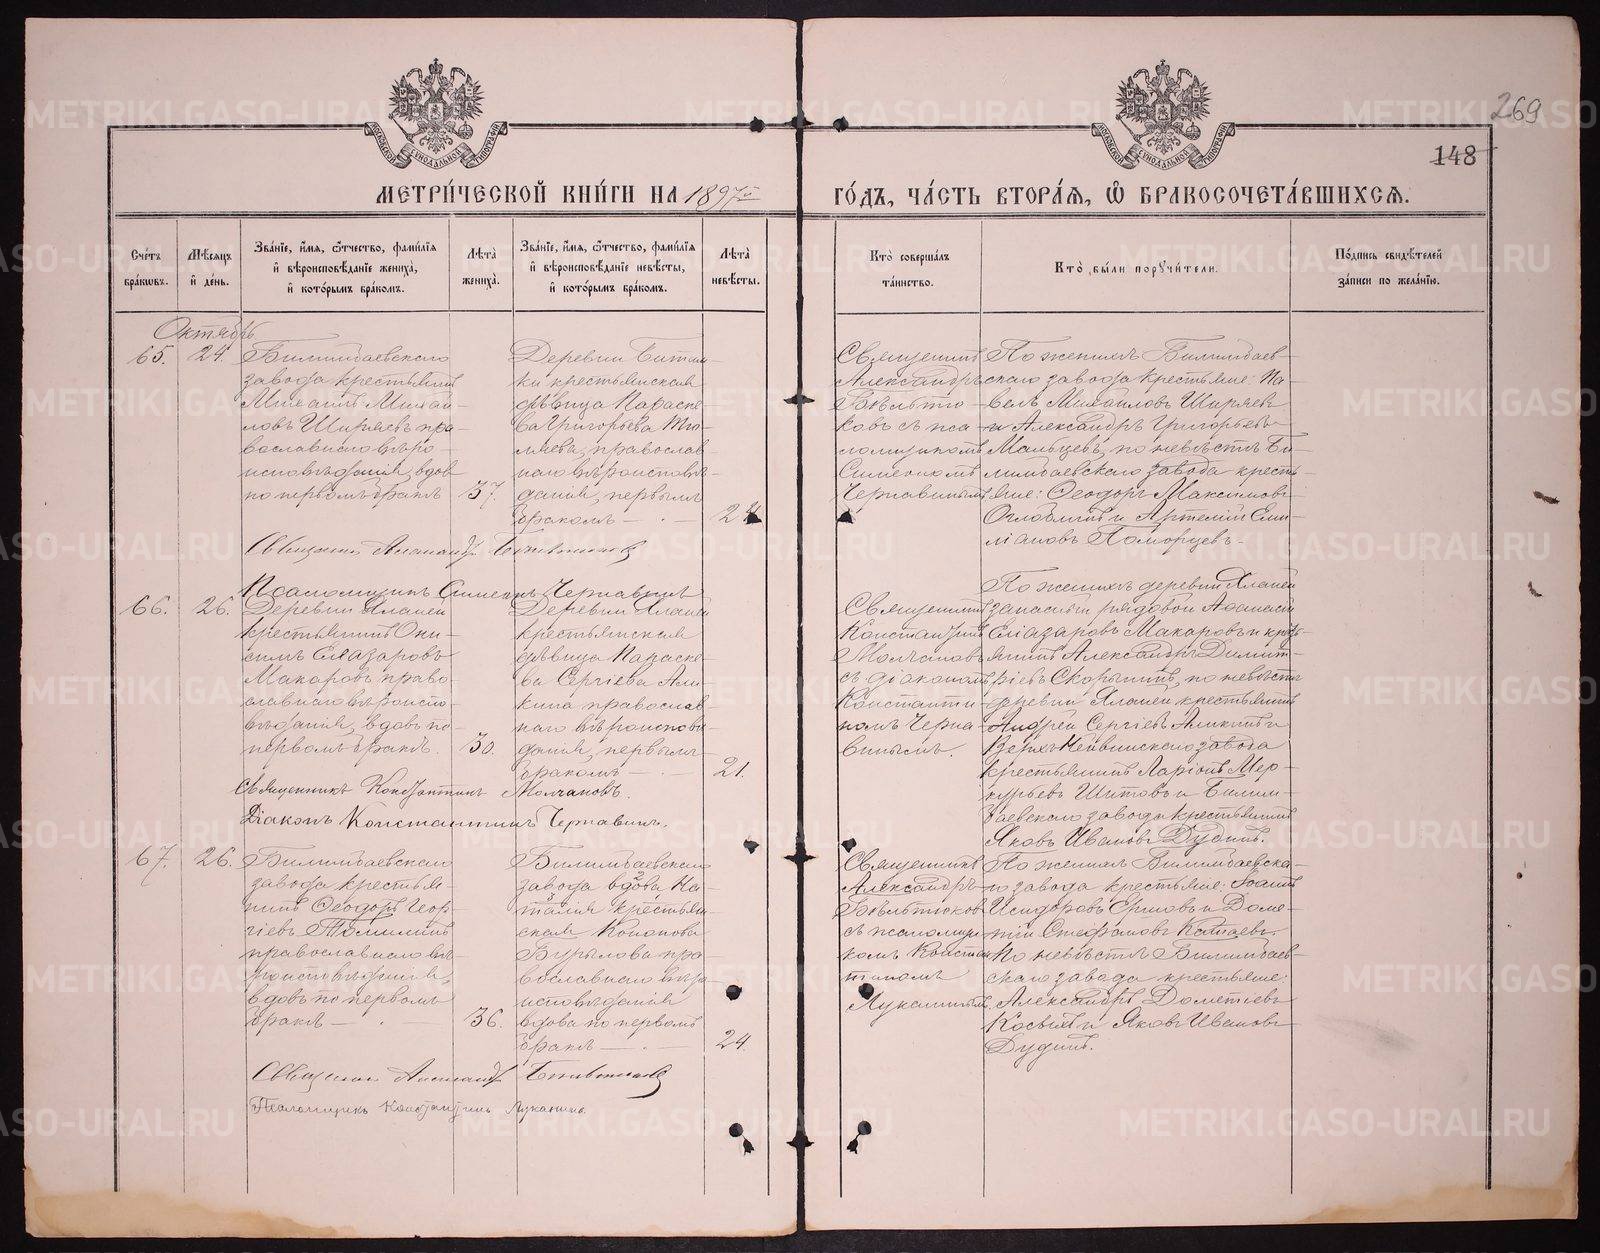 269
148
МЕТРИ́ЧЕСКОЙ КНИ́ГИ НА 1897й ГО́ДЪ, ЧА́СТЬ ВТОРА́Я, Ѽ БРАКОСОЧЕТА́ВШИХСЯ.
Сче́тъ бра́ковъ.
Мѣ́сяцъ и де́нь.
Зва́ніе, и́мя, ѻ́тчество, фами́лія и вѣроисповѣ́даніе жениха̀, и кото́рымъ бра́комъ.
Лѣта̀ жениха̀.
Зва́ніе, и́мя, ѻ́тчество, фами́лія и вѣроисповѣ́даніе невѣ́сты, и кото́рымъ бра́комъ.
Лѣта̀ невѣ́сты.
Кто̀ соверша́лъ та́инство.
Кто̀ бы́ли поручи́тели.
По́дпись свидѣ́телей за́писи по жела́нію.
Октябрь
65.
24.
Билимбаевскаго
завода крестьянинъ
Михаилъ Михай-
ловъ Ширяевъ пра-
вославнаго вѣро-
исповѣданія, вдов
по первомъ бракѣ
37.
Деревни Битим-
ки крестьянская
дѣвица Параске-
ва Григорьева
православ
наго вѣроисповѣ-
данія, первымъ
бракомъ
24
Священникъ
Александръ
Бѣльтю-
ковъ съ пса-
ломщикомъ
Симеономъ
Чернавинымъ
По женихѣ Билимбаев-
скаго завода крестьяне: Па-
велъ Михайловъ Ширяевъ
и Александръ Григорьевъ
Мальцевъ, по невѣстѣ Би-
лимбаевскаго завода кресть-
яне: Ѳеодоръ Максимовъ
Оглоблинъ и Артемій Еми-
ліановъ Поморцевъ.
Священникъ Александръ Бѣльтюковъ
Псаломщикъ Симеонъ Чернавинъ
66.
26.
Деревни Хланей
крестьянинъ Они-
симъ Елеазаровъ
Макаровъ право-
славнаго вѣроиспо-
вѣданія, вдовъ по
первомъ бракѣ.
30.
Деревни Хланей
крестьянская
дѣвица Параске-
ва Сергіева Али-
кина православ
наго вѣроиспове
данія, первымъ
бракомъ
21.
Священникъ
Константинъ
Молчановъ
съ діакономъ
Константи-
номъ Черна-
винымъ.
По женихѣ деревни Хланей
запасный рядовой Аѳанасій
Еліазаровъ Макаровъ и кресть-
янинъ Александръ Димит-
ріевъ Скорынинъ, по невѣстѣ
деревни Хланей крестьянинъ
Андрей Сергіевъ Аликинъ и
Верхъ-Нейвинскаго завода
крестьянинъ Ларіонъ Мер-
курьевъ Шитовъ и Билим-
баевскаго завода крестьянинъ
Яковъ Ивановъ Дудинъ.
Священникъ Константинъ Молчановъ.
Діаконъ Константинъ Чернавинъ.
67.
26.
Билимбаевскаго
завода крестья-
нинъ Ѳеодоръ Геор-
гіевъ Томилинъ
православнаго вѣ-
роисповѣданія,
вдовъ по первомъ
бракѣ
36.
Билимбаевскаго
завода вдова На-
талія крестьян-
ская Кононова
Бурылова пра-
вославнаго вѣро
исповѣданія
вдова по первомъ
бракѣ
24.
Священникъ
Александръ
Бѣльтюковъ
съ псаломщи-
комъ Констан-
тиномъ
Луканинымъ.
По женихѣ Билимбаевска-
го завода крестьяне: Іоаннъ
Исидоровъ Ершовъ и Доме-
тій Стефановъ Катаевъ.
По невѣстѣ Билимбаев-
скаго завода крестьяне:
Александръ Дометіевъ
Косыхъ и Яковъ Ивановъ
Дудинъ.
Священникъ Александръ Бѣльтюковъ
Псаломщикъ Константинъ Луканинъ.
METRIKI.GASO-URAL.RU